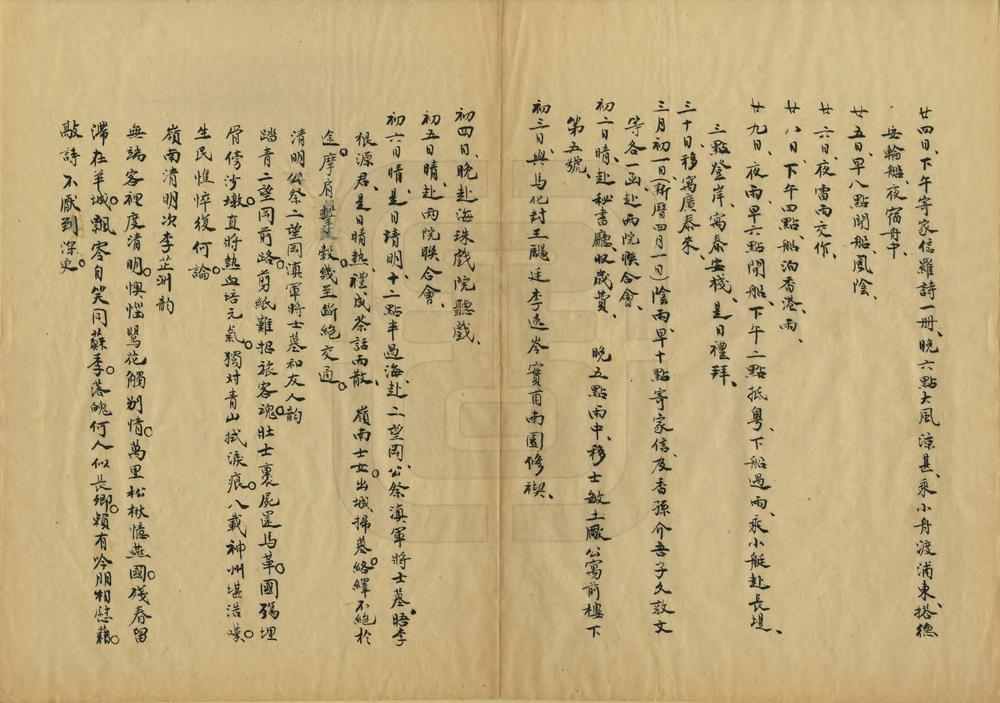 廿四日、下午寄家信羅詩一冊、晚六點大風涼甚、乘小舟渡浦東、搭德
安輪船夜宿舟中、
廿五日、早八點開船、風陰、
廿六日、夜雷雨交作、
廿八日、下午四點船泊香港、雨、
廿九日、夜雨早六點開船、下午二點抵粵、下船遇雨、乘小艇赴長堤、
三點登岸、寓泰安棧、是日禮拜、
三十日、移寓廣泰來、
三月初一日、新曆四月一日、陰雨、早十點寄家信、及香孫介吾子久敦文
等各一函、赴兩院聯合會、
初二日、晴、赴秘書廳收歲費、 晚五點雨中、移士敏土廠公寓前樓下
第五號、
初三日、與馬化封王颺廷李逸岑賓酉南園修禊、
初四日、晚赴海珠戲院聽戲、
初五日晴、赴兩院聯合會、
初六日晴、是日清明、十二點半過海、赴二望岡、公祭滇軍將士墓、晤李
根源君、是日晴熱、禮成茶話而散、 嶺南士女出城掃墓、絡繹不絕於
途、摩肩擊轂、幾至斷絕交通。
清明公祭二望岡滇軍將士墓和友人韵
踏青二望岡前路。剪紙難招旅客魂。壯士裹屍還馬革。國殤埋
骨傍沙墩。直將熱血培元氣。獨对青山拭淚痕。八載神州堪浩嘆。
生民憔悴復何論。
嶺南清明次李芷洲韵
無端客裡度清明。懊惱鶯花觸别情。萬里松楸憶燕國。殘春留
滯在羊城。飄零自笑同蘇季。落魄何人似長卿。賴有吟朋相慰藉。
敲詩不厭到深更。